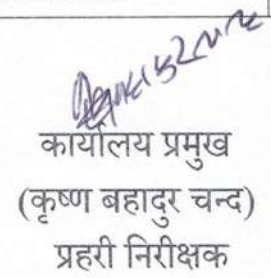 कार्यालय प्रमुख
(कृष्ण बहादुर चन्द)
प्रहरी निरीक्षक